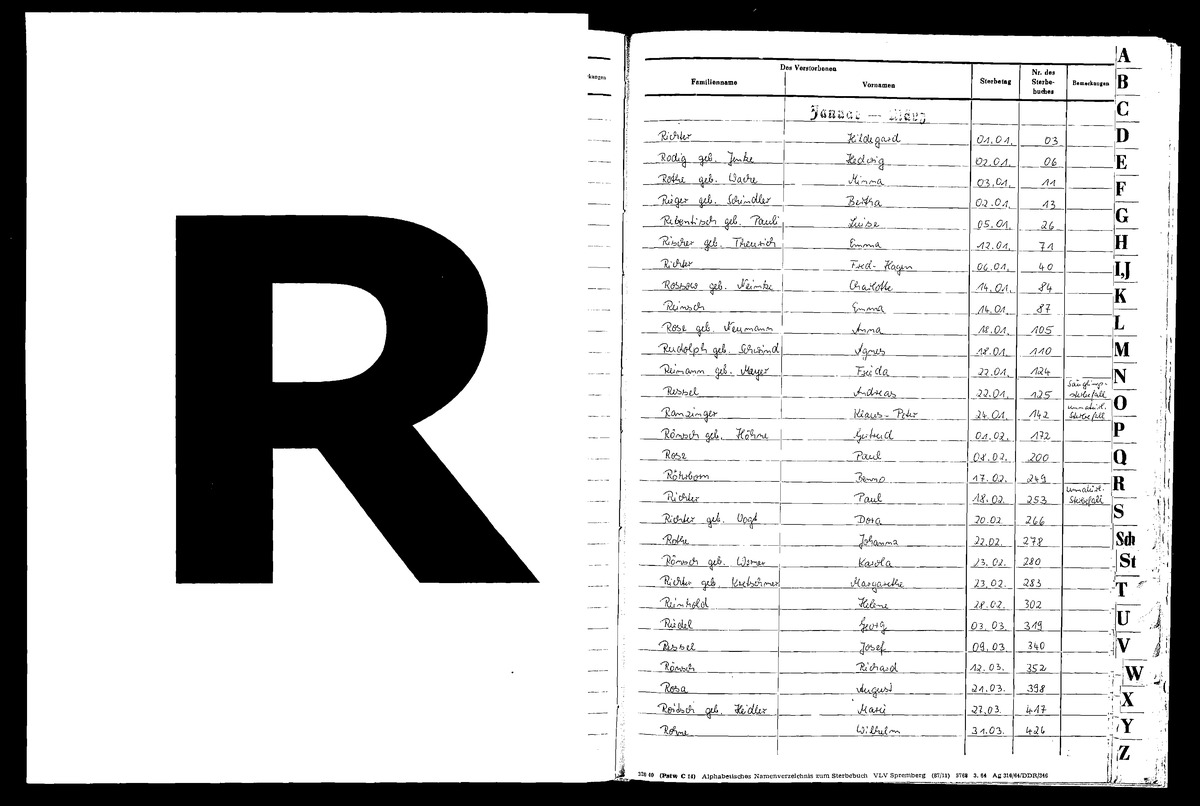 R
Des Verstorbenen
Familienname Vornamen Sterbetag Nr. des Sterbe-buches Bemerkungen
Januar — März
Richter Hildegard 01.01. 03
Rodig geb. Jenke Hedwig 02.01. 06
Rothe geb. Wache Minna 03.01. 11
Rieger geb. Schindler Bertha 02.01. 13
Rebentisch geb. Pauli Luise 05.01. 26
Rischer geb. Emma 12.01. 71
Richter Fred-Hagen 06.01. 40
Rossow geb. Charlotte 14.01. 84
Reinsch Emma 14.01. 87
Rose geb. Neumann Anna 18.01. 105
Rudolph geb. Schwind Agnes 18.01. 110
Reimann geb. Mayer Frieda 22.01. 124
Ressel Andreas 22.01. 125 Säuglings-sterbefall
Ranzinger Klaus-Peter 24.01. 142 unnatürl. Sterbefall
Rönsch geb. Höhne Gertrud 01.02. 172
Rose Paul 08.02. 200
Röhrborn Benno 17.02. 249
Richter Paul 18.02. 253 unnatürl. Sterbefall
Richter geb. Vogt Dora 20.02 266
Rothe Johanna 22.02. 278
Rönsch geb. Werner Karola 23.02. 280
Richter geb. Kretschmer Margarethe 23.02. 283
Reinhold Helene 28.02. 302
Riedel Georg 03.03. 319
Ressel Josef 09.03. 340
Rönsch Richard 12.03. 352
Rosa August 21.03. 398
geb. Heidler Marie 27.03. 417
Rohne Wilhelm 31.03. 426
(Pstw C 14) Alphabetisches Namenverzeichnis zum Sterbebuch VLV Spremberg (87/11) 5768 3. 64 Ag 310/64/DDR/346
A
B
C
D
E
F
G
H
I,J
K
L
M
N
O
P
Q
R
S
Sch
St
T
U
V
W
X
Y
Z